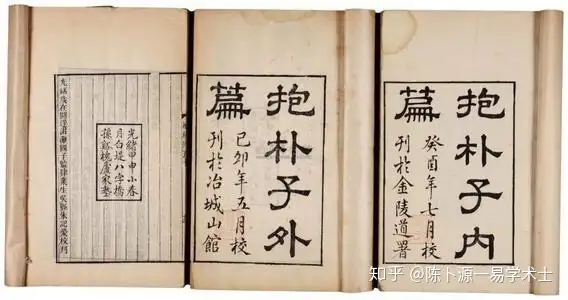 抱朴子內
篇
癸酉年七月校
刊於金陵道署
抱朴子外
篇
己卯年五月校
刊於冶城山館
光緒甲申小春
月白堤八字橋
孫谿槐廬家塾
光緒歲在閼逢涒灘國子監肄業生吳縣朱記榮校刊
知乎 @陈卜源一易学术士